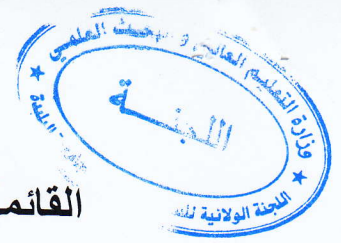 وزارة التعليم العالي و البحث العلمي
اللجنة
اللجنة الولائية
البليدة
القائم